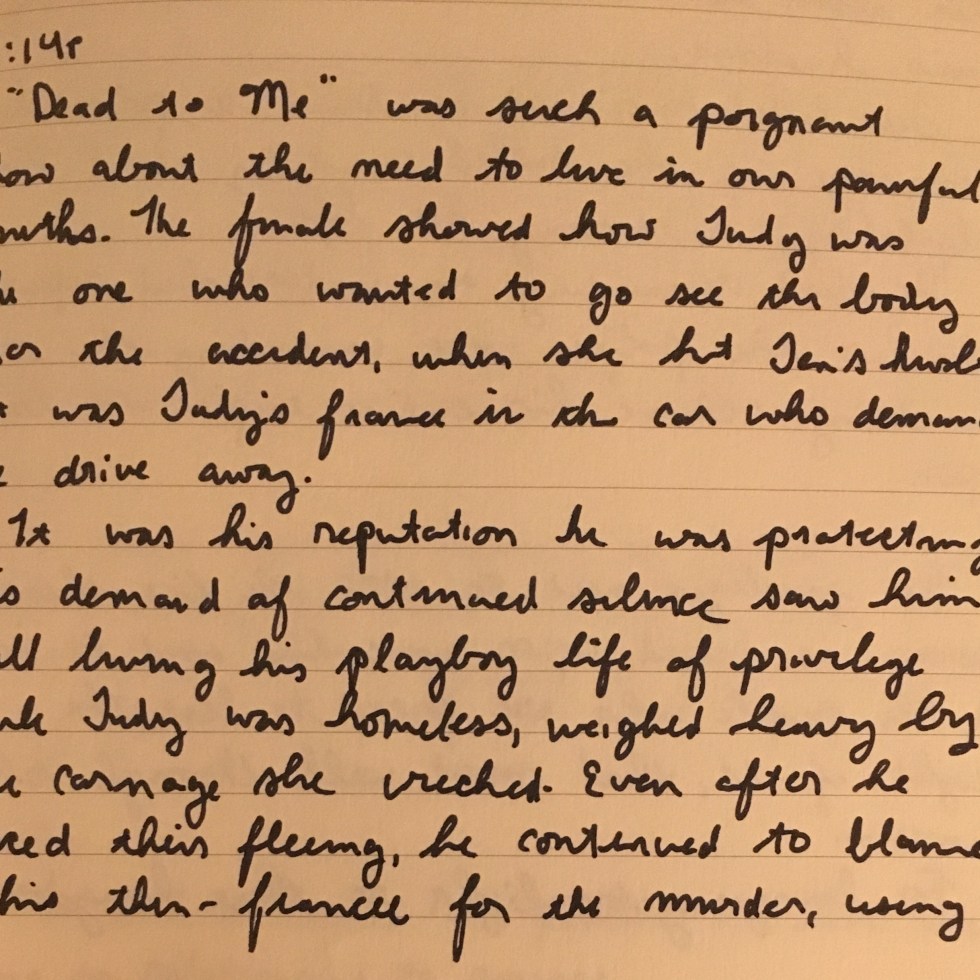 :14p
"Dead to Me" was such a poignant
how about the need to live in our painful
truths. The finale showed how Judy was
one who wanted to go see the body
the accident, when she hit Jen's
was Judy's fiance in the car who
drive away.
It was his reputation he was protecting
demand of continued silence saw him
ll living his playboy life of privilege
Judy was homeless, weighed heavy by
carnage she wreched. Even after he
their fleeing, he continued to blame
his then-fiancee for the murder, using